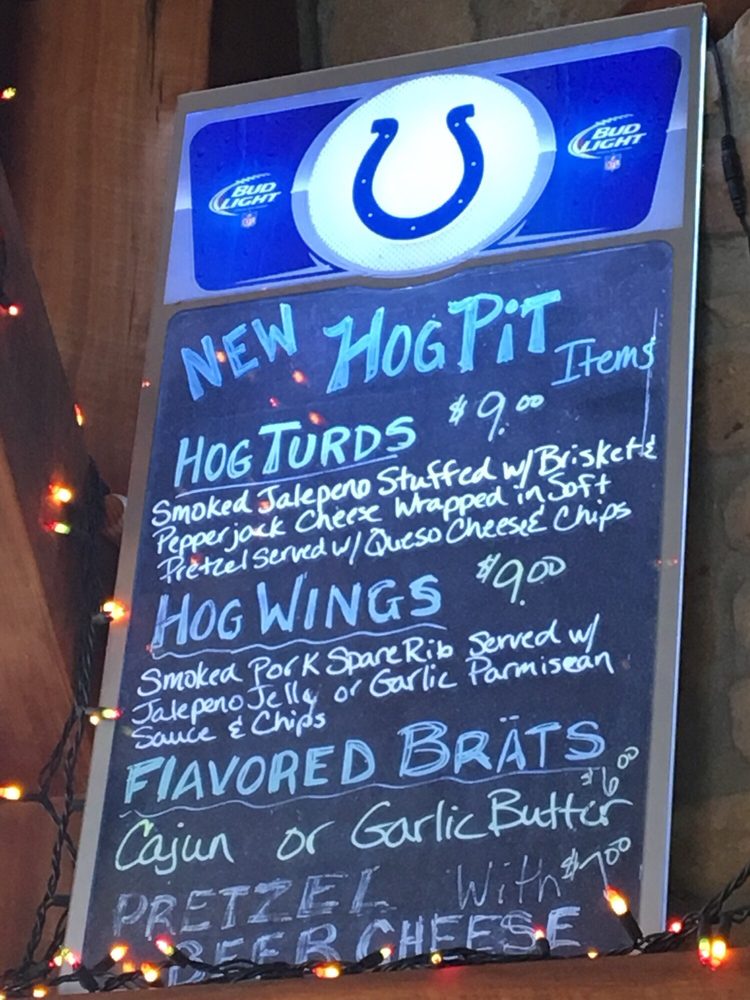 BUD LIGHT
NFL
BUD LIGHT
NFL
NEW HOG PiT Items
HOG TURDS $9.00
Smoked Jalepeno Stuffed w/ Brisket &
Pepperjack Cheese Wrapped in Soft
Pretzel Served w/ Queso Cheese & Chips
HOG WINGS $9.00
Smoked Pork Spare Rib Served w/
Jalepeno Jelly or Garlic Parmisean
Sauce & Chips
FLAVORED BRÄTS
$6.00
Cajun or Garlic Butter
PRETZEL With $7.00
BEER CHEESE